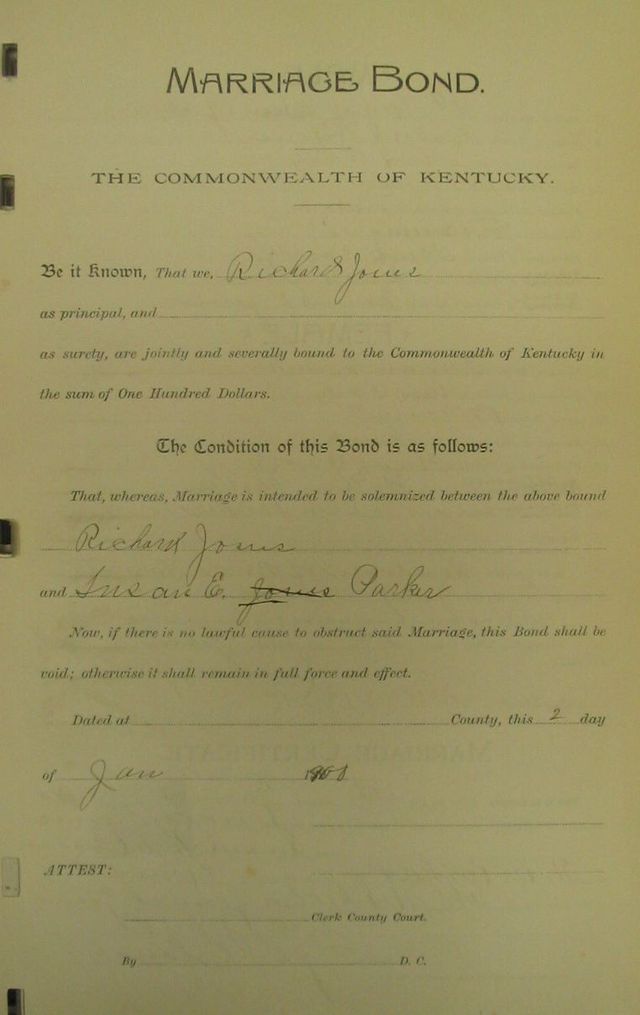 MARRIAGE BOND.
THE COMMONWEALTH OF KENTUCKY.
Be it Known, That we, Richard Jones
as principal, and
as surety, are jointly and severally bound to the Commonwealth of Kentucky in
the sum of One Hundred Dollars.
The Condition of this Bond is as follows:
That, whereas, Marriage is intended to be solemnized between the above bound
Richard Jones
and Susan E. Jones Parker
Now, if there is no lawful cause to obstruct said Marriage, this Bond shall be
void; otherwise it shall remain in full force and effect.
Dated at County, this 2 day
of Jan
ATTEST:
Clerk County Court.
By D. C.